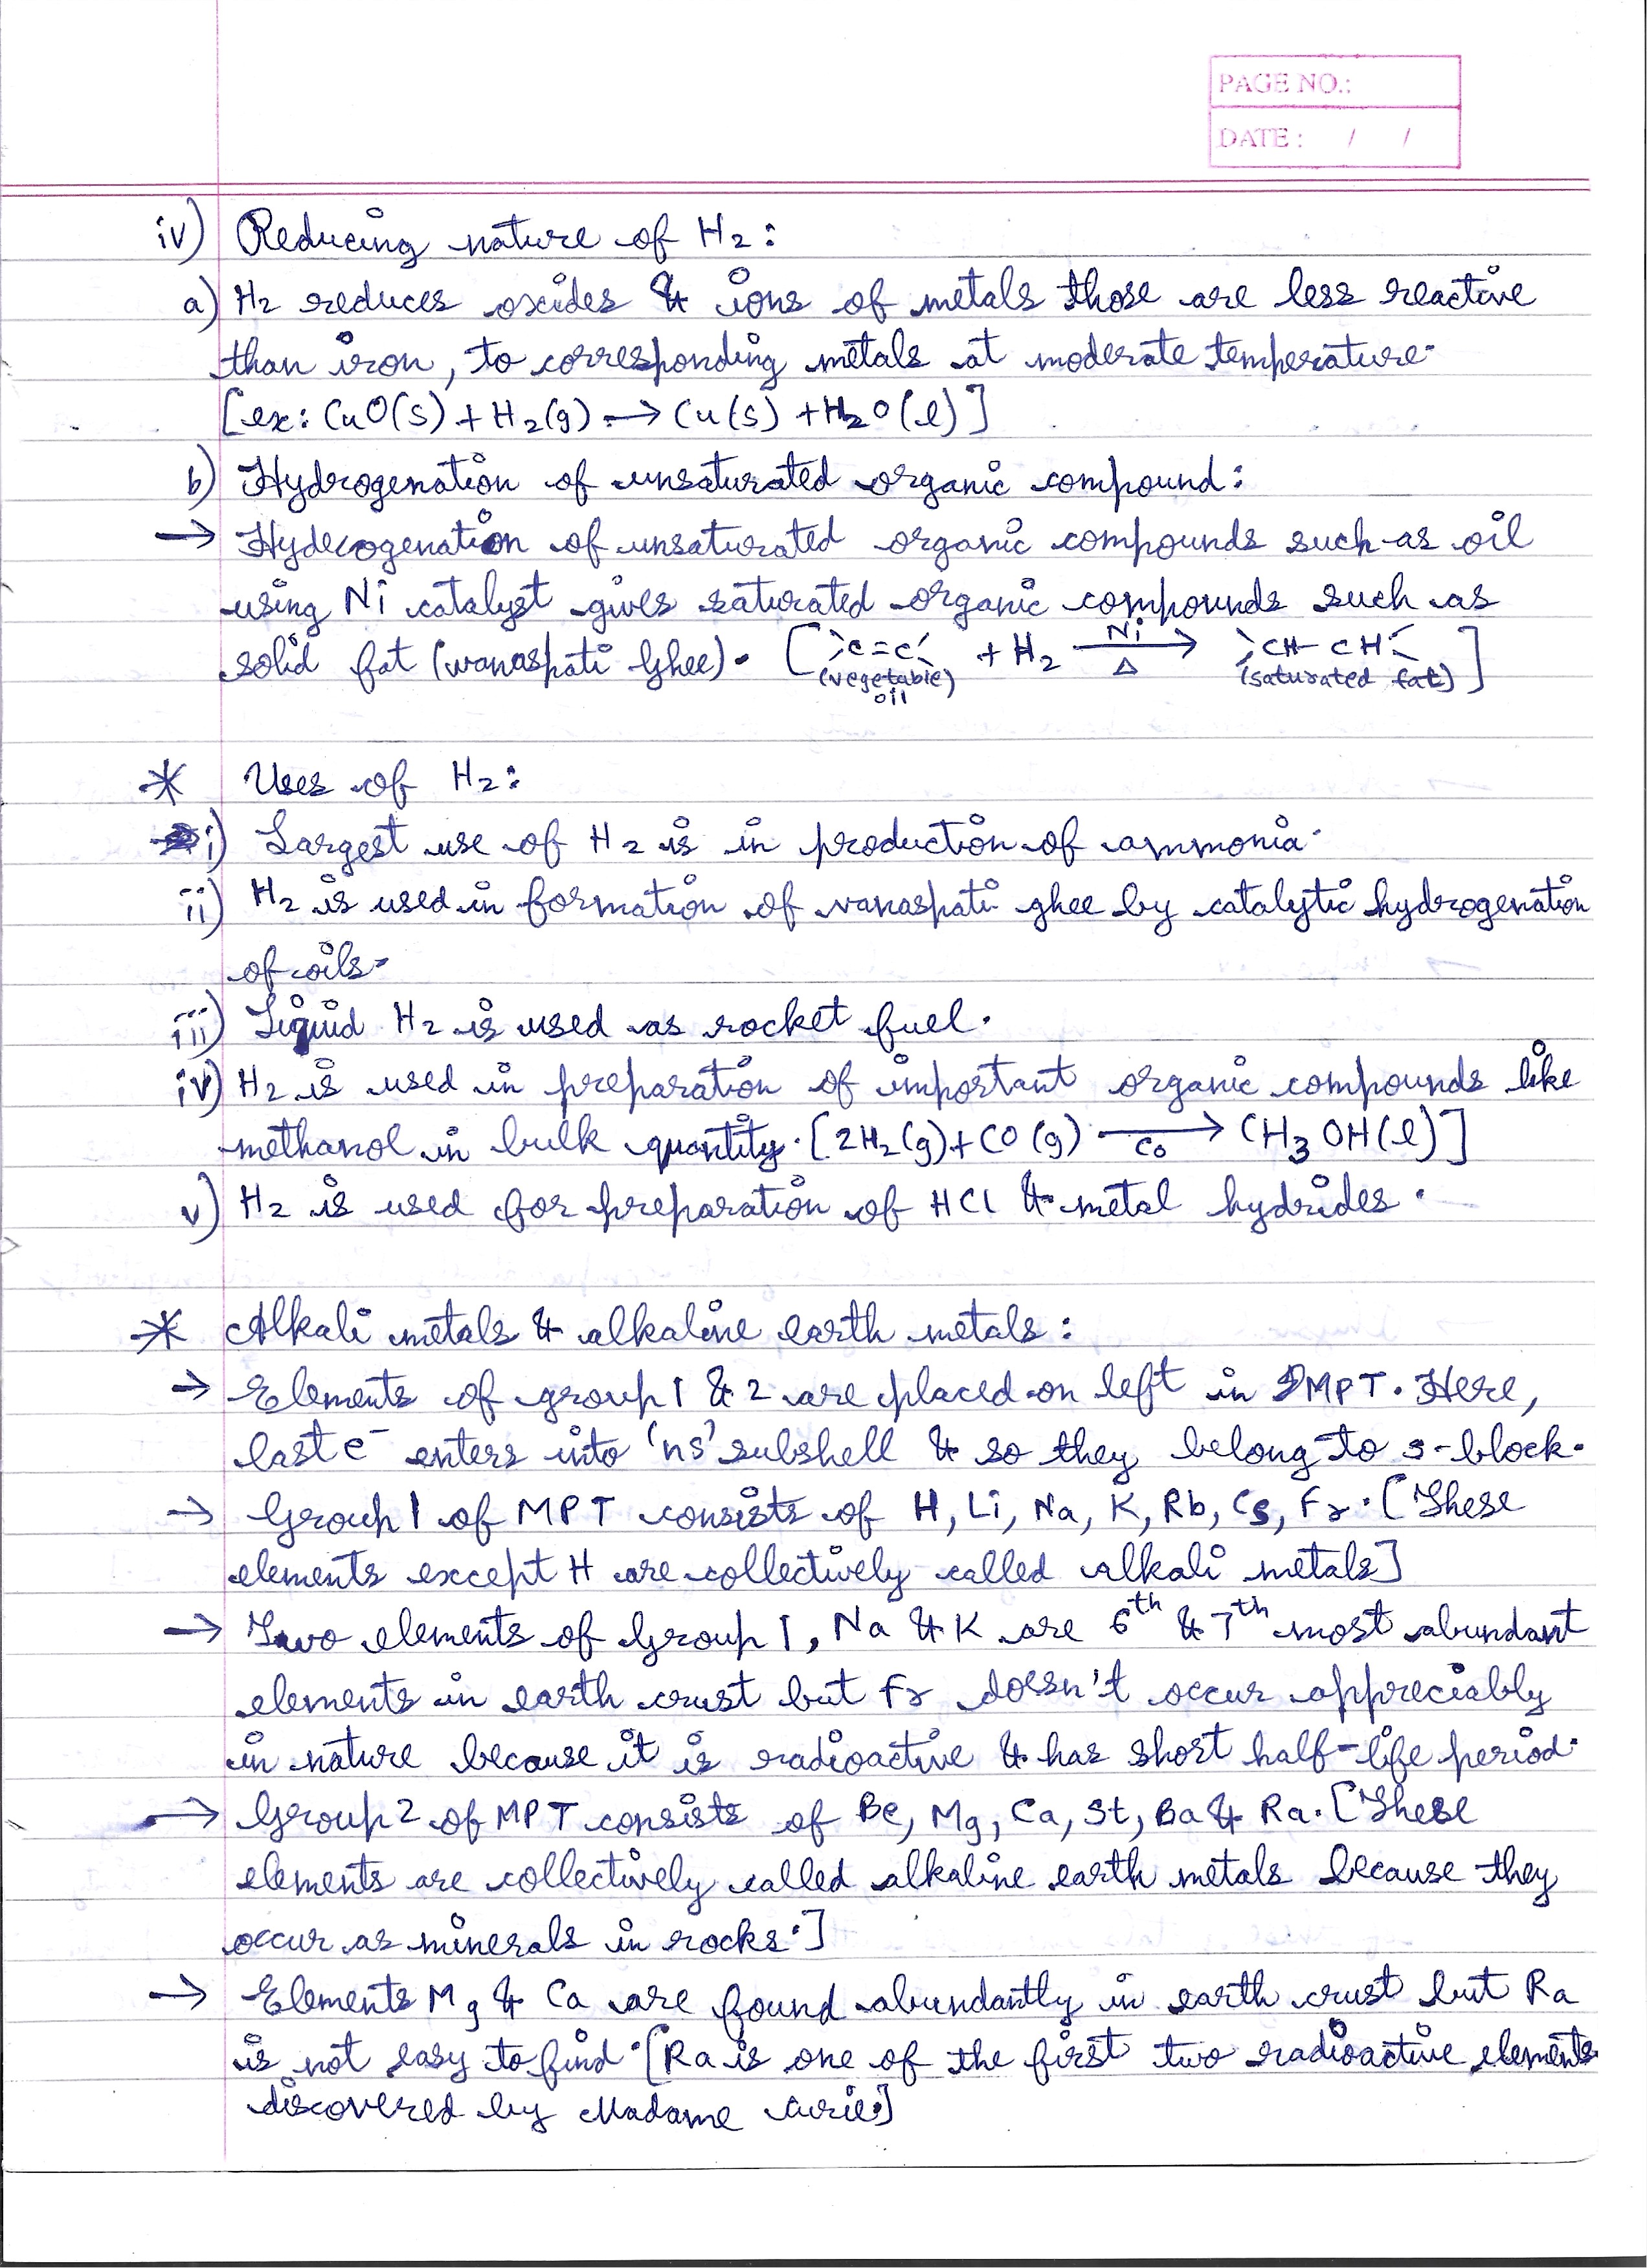 PAGE NO.:
DATE : / /
iv) Reducing nature of H₂ :
a) H₂ reduces oxides & ions of metals those are less reactive
than iron, to corresponding metals at moderate temperature.
[ex: CuO(s) + H₂(g) → Cu(s) + H₂O(l)]
b) Hydrogenation of unsaturated organic compound :
→ Hydrogenation of unsaturated organic compounds such as oil
using Ni catalyst gives saturated organic compounds such as
solid fat (vanaspati Ghee). [ >C=C< + H₂ —Ni/Δ→ >CH-CH< ]
(vegetable oil) (saturated fat)
* Uses of H₂ :
i) Largest use of H₂ is in production of ammonia.
ii) H₂ is used in formation of vanaspati ghee by catalytic hydrogenation
of oils.
iii) Liquid H₂ is used as rocket fuel.
iv) H₂ is used in preparation of important organic compounds like
methanol in bulk quantity. [2H₂(g) + CO(g) —Co→ CH₃OH(l)]
v) H₂ is used for preparation of HCl & metal hydrides.
* Alkali metals & alkaline earth metals :
→ Elements of group 1 & 2 are placed on left in MPT. Here,
last e⁻ enters into 'ns' subshell & so they belong to s-block.
→ Group 1 of MPT consists of H, Li, Na, K, Rb, Cs, Fr. [These
elements except H are collectively called alkali metals]
→ Two elements of Group 1, Na & K are 6th & 7th most abundant
elements in earth crust but Fr doesn't occur appreciably
in nature because it is radioactive & has short half-life period.
→ Group 2 of MPT consists of Be, Mg, Ca, St, Ba & Ra. [These
elements are collectively called alkaline earth metals because they
occur as minerals in rocks.]
→ Elements Mg & Ca are found abundantly in earth crust but Ra
is not easy to find. [Ra is one of the first two radioactive elements
discovered by Madame Curie.]